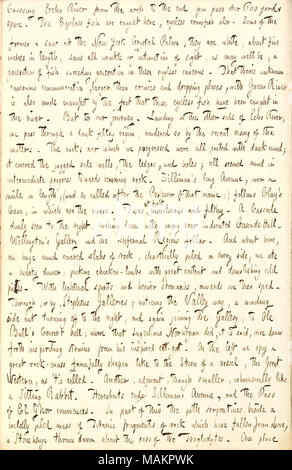 Crossing Echo River from the arch to the end you pass over 600 yards of
space. The Eyeless fish are caught here, eyeless crawfish also. Some of the
former I saw at the New York Crystal Palace, they are white, about five
inches in length, sans all wrinkle or intimation of sight, as may well be, a
of fish in these eyeless caverns. That those unknown
cavernous communication (lesser than crevices and dropping places) with Green River
is also made manifest by the fact that these eyeless fish have been caught in
the river. But to our journey. Landing at the other side of Echo River,
we pass through a dank alley rendered so by the recent of the
waters. The rocks over which we progressed were all coated with dank mud;
it covered the jagged side walls, the ledges, and holes; all seemed mud in
intermediate progress towards becoming rock. Silliman's long Avenue, over a
mile in length, (and so called after the Professor of that name,) follows Clay's
Cave, in which are the and filing. A Cascade
duly seen to the right, rushing down into many rear indurated Cascade Hall.
Wellington's Gallery and the Infernal Regions follow. And about here,
on huge mud covered slabs of rock, chaotically piled on every side, we ate
a hearty dinner; picking chicken-limbs with great content and demolishing cold
With lightened spirits and heavier stomachs, onwards we then sped.
Through, or by Stephens Galleries; noticing the Valley Way, a winding
side cut turning off to the right and again joining the Gallery, to Ole
Bull's Concert hall, where that sagacious Norwegian did, it's said, once draw
forth inspiring stories from his inspired cat-gut. On the left we spy
great rock-mass fancifully shapen like to the Stern of a vessel, the Great
Western, as 'tis called. Another, adjacent though smaller, whimsically like
a Sitting Rabbit. Hereabouts ends Silliman's Avenue, and the Pass
of El Ghor commences. In part of this the path serpentines beside a
wildly piled mass of Titanic fragments of rock which have fallen from above,
a Stonehenge thrown down about the ears of the Troglodytes. One place